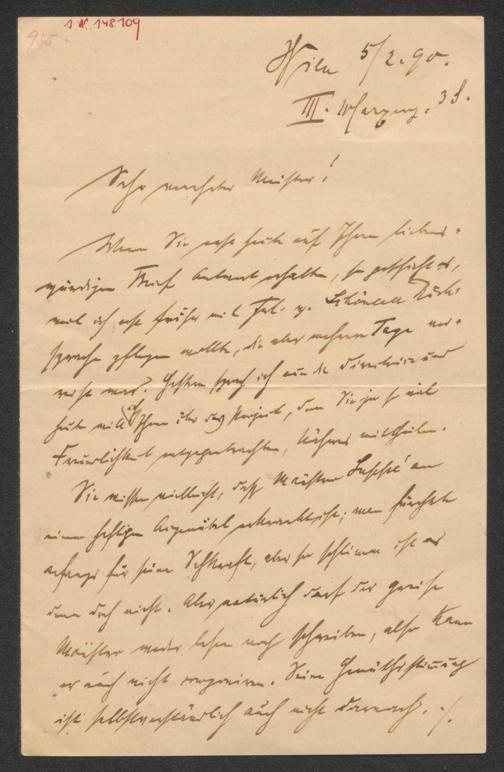 955
I.N. 148109
Wien 5/2.90.
III. Marxerg. 38.
Sehr verehrter Meister!
Wenn Sie erst heute auf Ihren liebens-
würdigen Brief Antwort erhalten, so geschieht es,
weil ich erst früher mit Frl. v. Rück-
sprache pflegen wollte, die aber mehrere Tage ver-
reist war. Gestern sprach ich nun die und
heute will ich Ihnen über das Projekt, dem Sie ja so viel
Freundlichkeit entgegenbrachten, Näheres mittheilen.
Sie wissen vielleicht, daß Meister an
einem heftigen Augenübel erkrankt ist; man fürchtete
anfangs für seine Sehkraft, aber so schlimm ist es
denn doch nicht. Aber natürlich darf der greise
Meister weder lesen noch schreiben, also kann
er auch nicht componiren. Seine Gemüthsstimmung
ist selbstverständlich auch nicht darnach. ./.